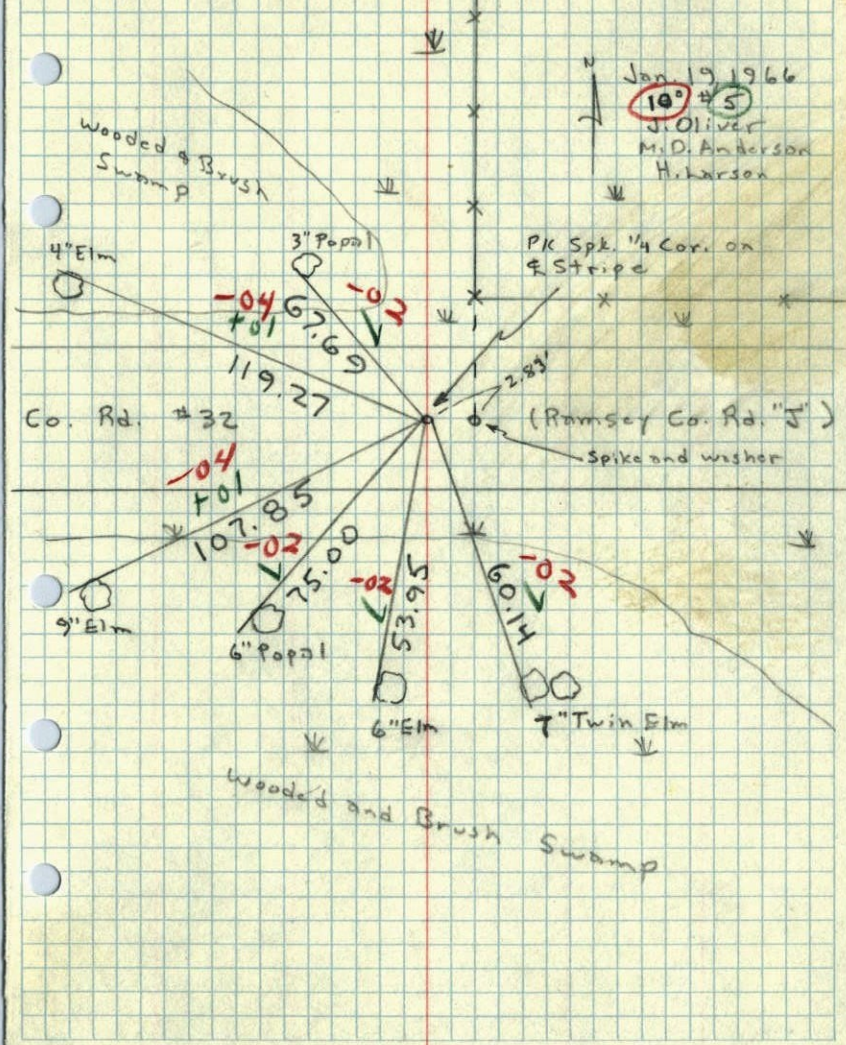 N
Jan. 19, 1966
10° # 5
J. Oliver
M. D. Anderson
H. Larson
Wooded & Brush
Swamp
3" Popal
4" Elm
PK Spk. 1/4 Cor. on
℄ Stripe
-04
+01
119.27
67.69
-02
2.83'
Co. Rd. #32
(Ramsey Co. Rd. "J")
Spike and washer
-04
+01
107.85
-02
75.00
-02
53.95
60.14
-02
9" Elm
6" Popal
6" Elm
7" Twin Elm
Wooded and Brush Swamp